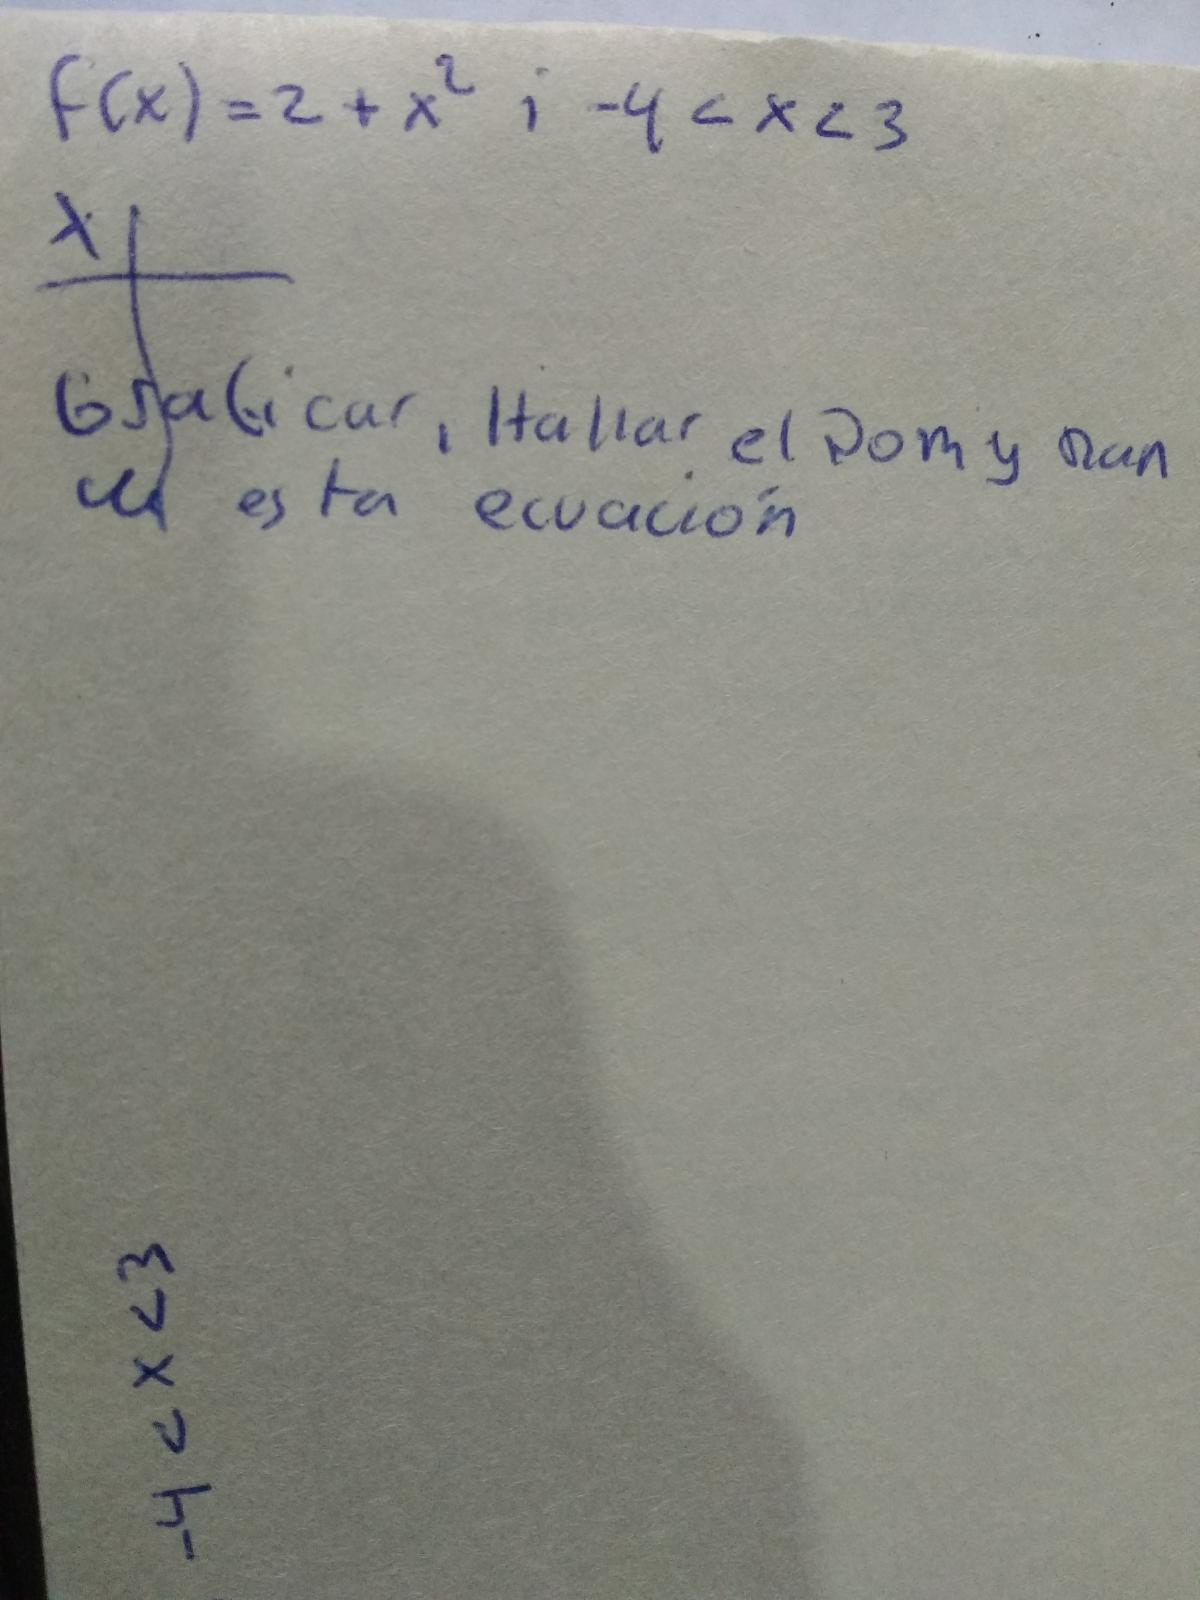 f(x) = 2 + x² ; -4 < x < 3
x
Graficar, Hallar el Dom y Ran
esta ecuación
-4 < x < 3